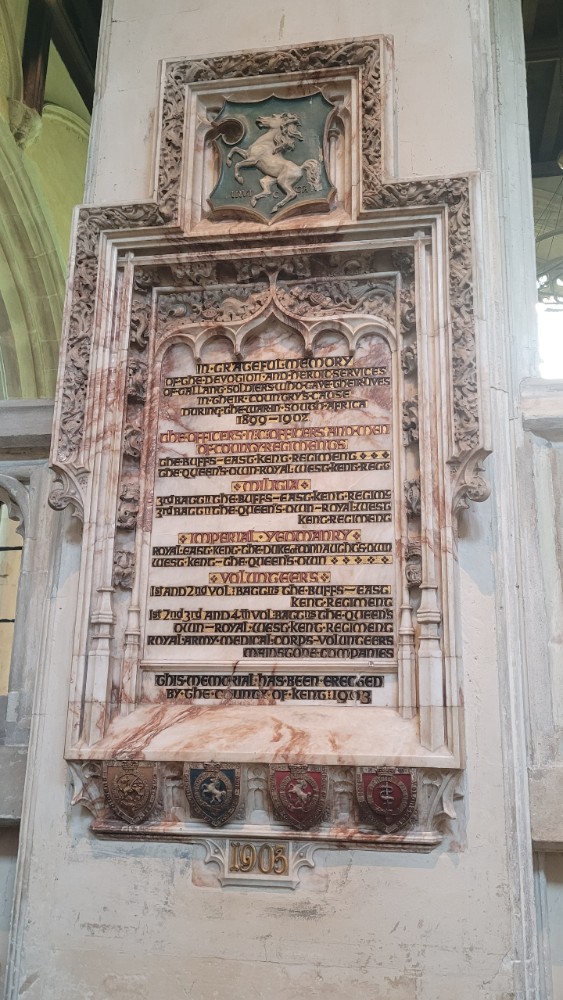 INVICTA
IN·GRATEFUL·MEMORY
OF·THE·DEVOTION·AND·HEROIC·SERVICES
OF·GALLANT·SOLDIERS·WHO·GAVE·THEIR·LIVES
IN·THEIR·COUNTRY'S·CAUSE
DURING·THE·WAR·IN·SOUTH·AFRICA
1899–1902
THE·OFFICERS·N.C.OFFICERS·AND·MEN
OF·COUNTY·REGIMENTS
THE·BUFFS–EAST·KENT·REGIMENT
THE·QUEEN'S·OWN·ROYAL·WEST·KENT·REGT
MILITIA
3RD BATTN THE·BUFFS–EAST·KENT·REGIMT
3RD BATTN THE·QUEEN'S·OWN–ROYAL·WEST
KENT·REGIMENT
IMPERIAL·YEOMANRY
ROYAL·EAST·KENT·THE·DUKE·CONNAUGHT'S·OWN
WEST·KENT–THE·QUEEN'S·OWN
VOLUNTEERS
1st AND 2nd VOL: BATTNS THE·BUFFS–EAST
KENT·REGIMENT
1st 2nd 3rd AND 4th VOL: BATTNS THE·QUEEN'S
OWN–ROYAL·WEST·KENT·REGIMENT
ROYAL·ARMY·MEDICAL·CORPS·VOLUNTEERS
MAIDSTONE·COMPANIES
THIS·MEMORIAL·HAS·BEEN·ERECTED
BY·THE·COUNTY·OF·KENT: 1903
1903